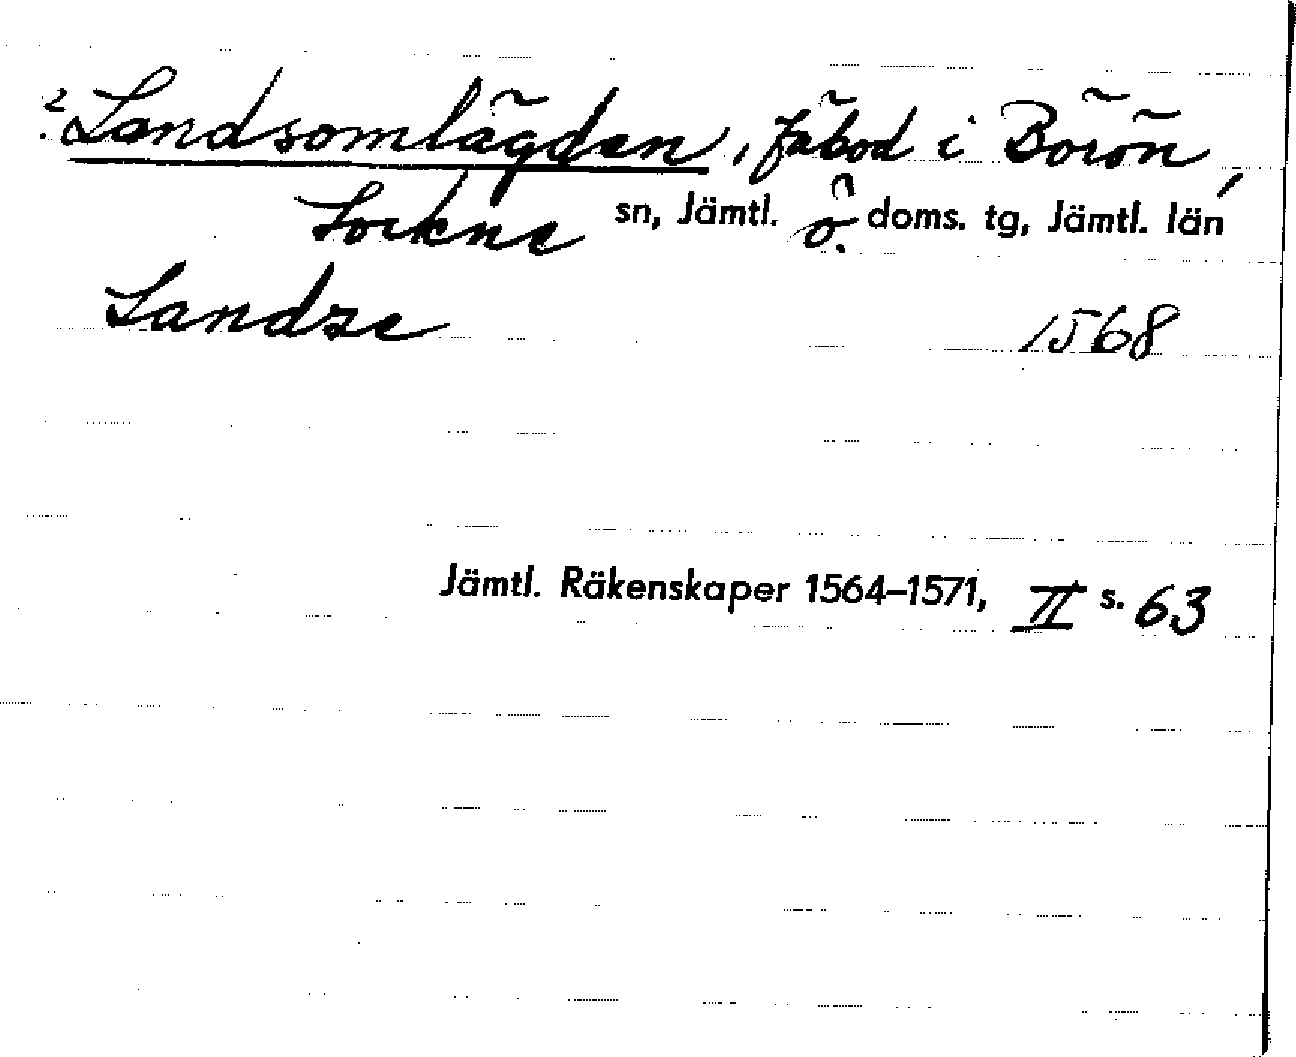 ? Landsomlägden, fäbod i Börön,
Lockne sn, Jämtl. ö. doms. tg, Jämtl. län
Landze 1568
Jämtl. Räkenskaper 1564–1571, II s. 63